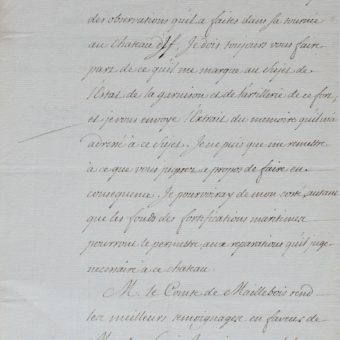 des observations qu'il a faites dans sa tournée
au chateau d'If. Je dois toujours vous faire
part de ce qu'il me marque au sujet de
l'Etat de la garnison et de l'artillerie de ce fort,
et je vous envoye l'Extrait du memoire qu'il m'a
adressé à ce sujet. Je ne puis que me remettre
à ce que vous jugerez a propos de faire en
consequence. Je pourvoiray de mon costé, autant
que les fonds des fortifications maritimes
pourront le permettre aux reparations qu'il juge
necessaire à ce chateau.
M. le Comte de Maillebois rend
les meilleurs temoignages en faveur de